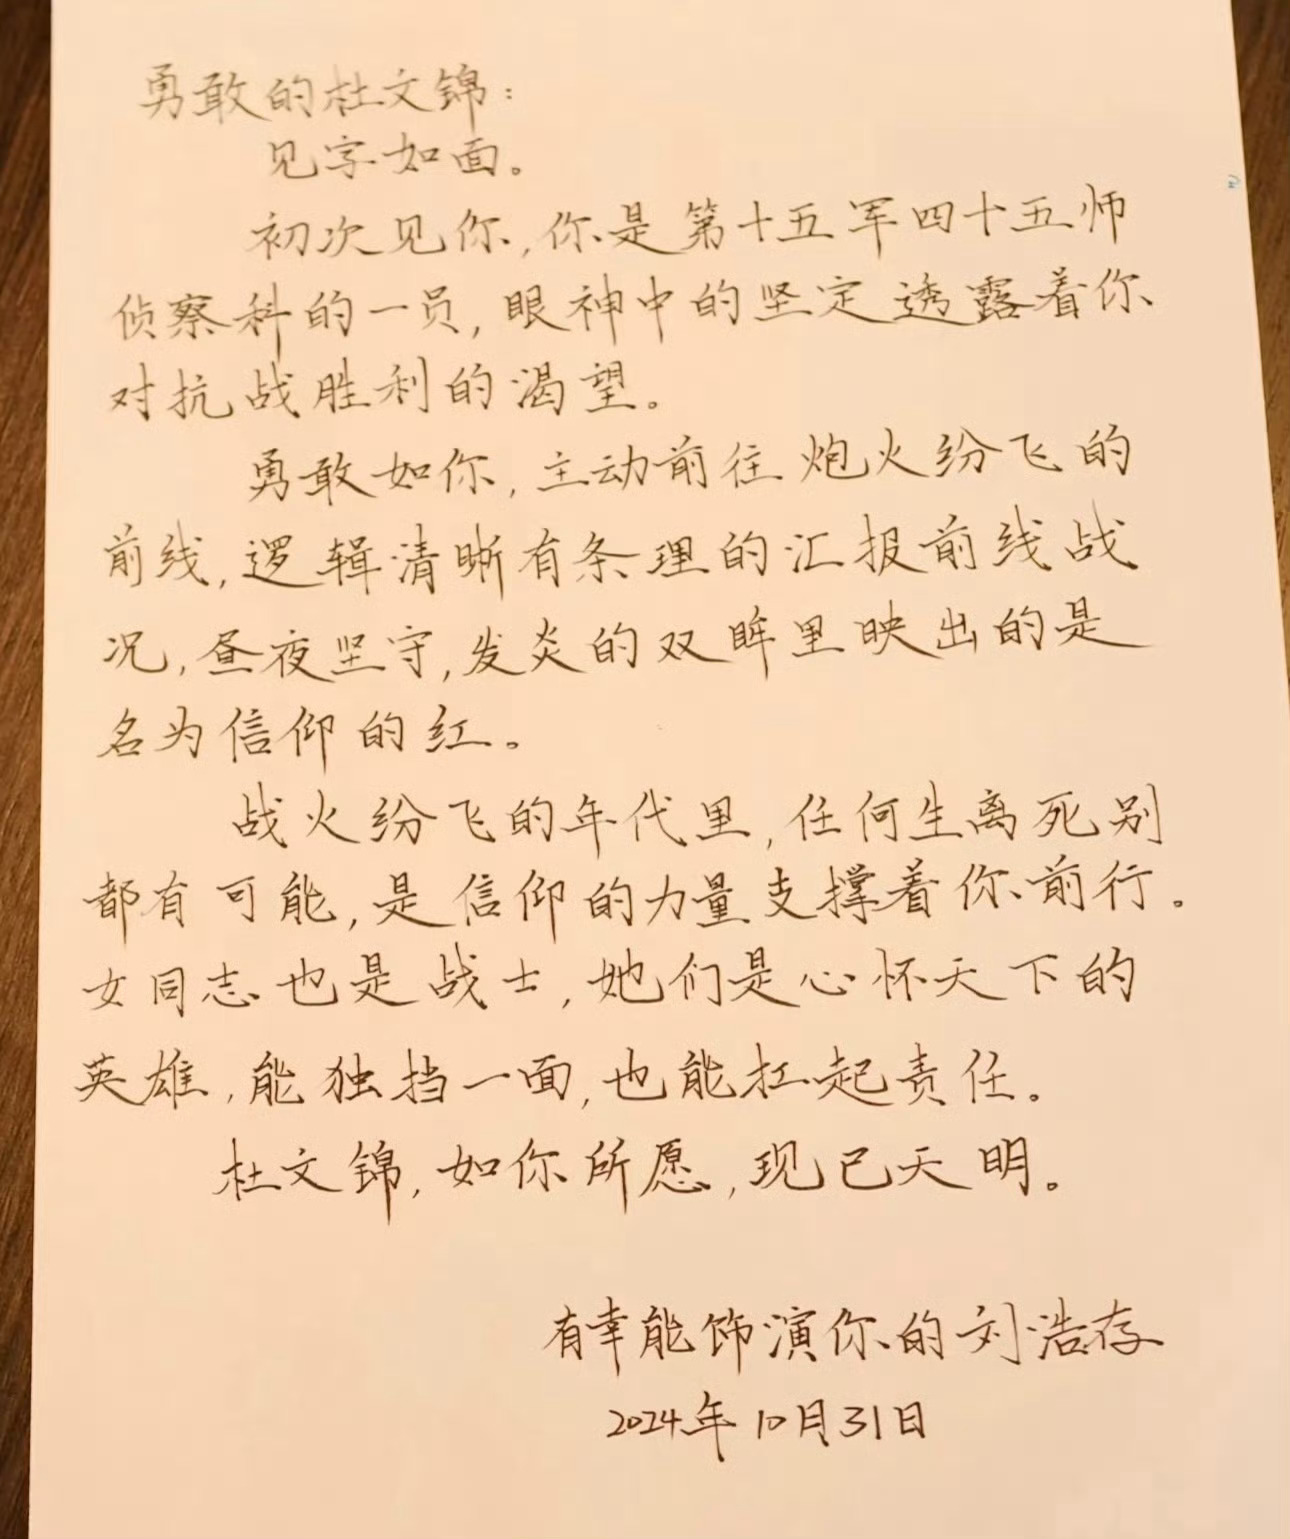 勇敢的杜文锦：
见字如面。
初次见你，你是第十五军四十五师
侦察科的一员，眼神中的坚定透露着你
对抗战胜利的渴望。
勇敢如你，主动前往炮火纷飞的
前线，逻辑清晰有条理的汇报前线战
况，昼夜坚守，发炎的双眸里映出的是
名为信仰的红。
战火纷飞的年代里，任何生离死别
都有可能，是信仰的力量支撑着你前行。
女同志也是战士，她们是心怀天下的
英雄，能独挡一面，也能扛起责任。
杜文锦，如你所愿，现已天明。
有幸能饰演你的刘浩存
2024年10月31日